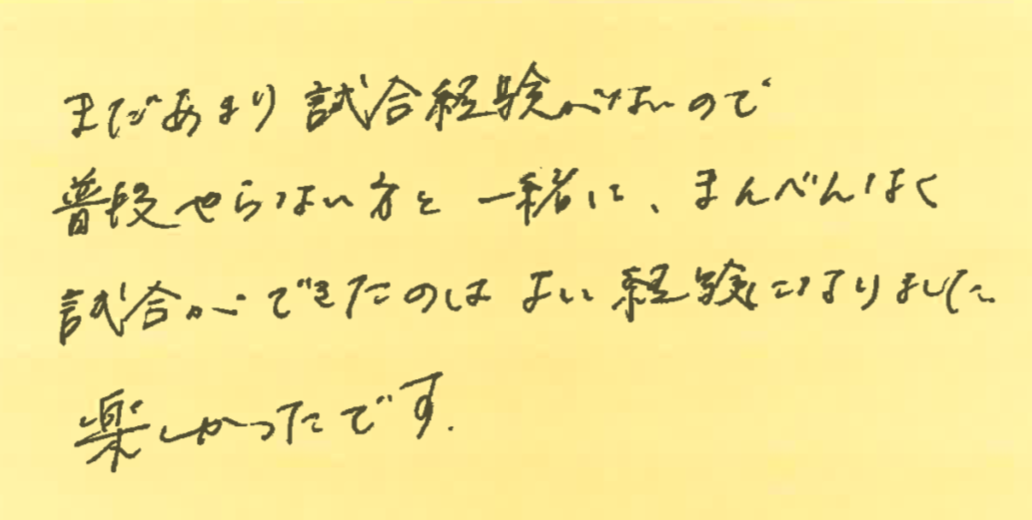 まだあまり試合経験がないので
普段やらない方と一緒に、まんべんなく
試合ができたのはよい経験になりました。
楽しかったです.